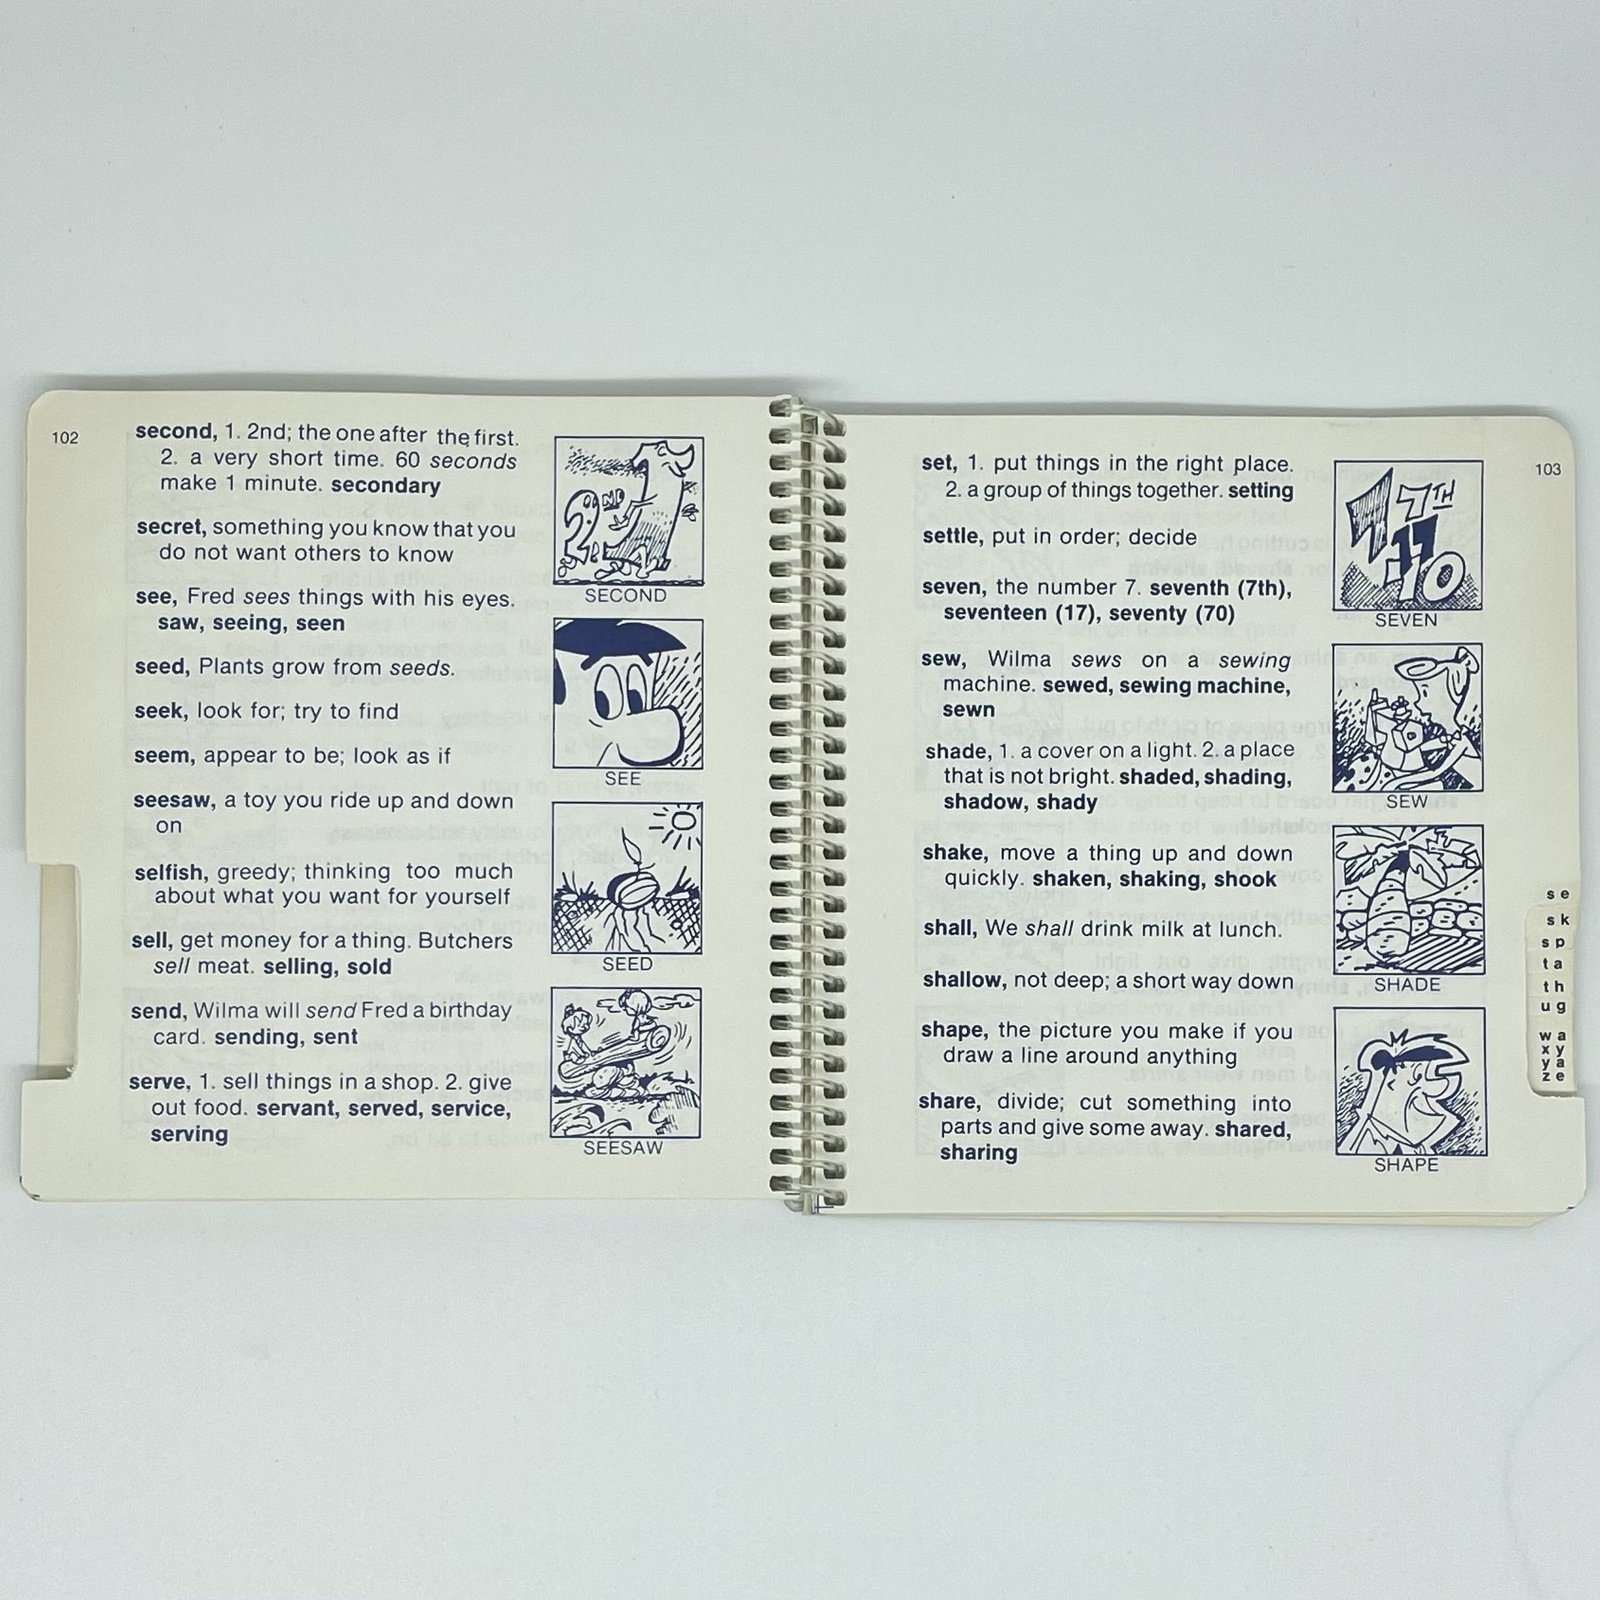 102
second, 1. 2nd; the one after the first.
2. a very short time. 60 seconds
make 1 minute. secondary
secret, something you know that you
do not want others to know
see, Fred sees things with his eyes.
saw, seeing, seen
seed, Plants grow from seeds.
seek, look for; try to find
seem, appear to be; look as if
seesaw, a toy you ride up and down
on
selfish, greedy; thinking too much
about what you want for yourself
sell, get money for a thing. Butchers
sell meat. selling, sold
send, Wilma will send Fred a birthday
card. sending, sent
serve, 1. sell things in a shop. 2. give
out food. servant, served, service,
serving
2ND 1
SECOND
SEE
SEED
SEESAW
103
set, 1. put things in the right place.
2. a group of things together. setting
settle, put in order; decide
seven, the number 7. seventh (7th),
seventeen (17), seventy (70)
sew, Wilma sews on a sewing
machine. sewed, sewing machine,
sewn
shade, 1. a cover on a light. 2. a place
that is not bright. shaded, shading,
shadow, shady
shake, move a thing up and down
quickly. shaken, shaking, shook
shall, We shall drink milk at lunch.
shallow, not deep; a short way down
shape, the picture you make if you
draw a line around anything
share, divide; cut something into
parts and give some away. shared,
sharing
7 7TH
17
70
SEVEN
SEW
SHADE
SHAPE
se
sk
sp
ta
th
ug
wa
xy
ya
ze